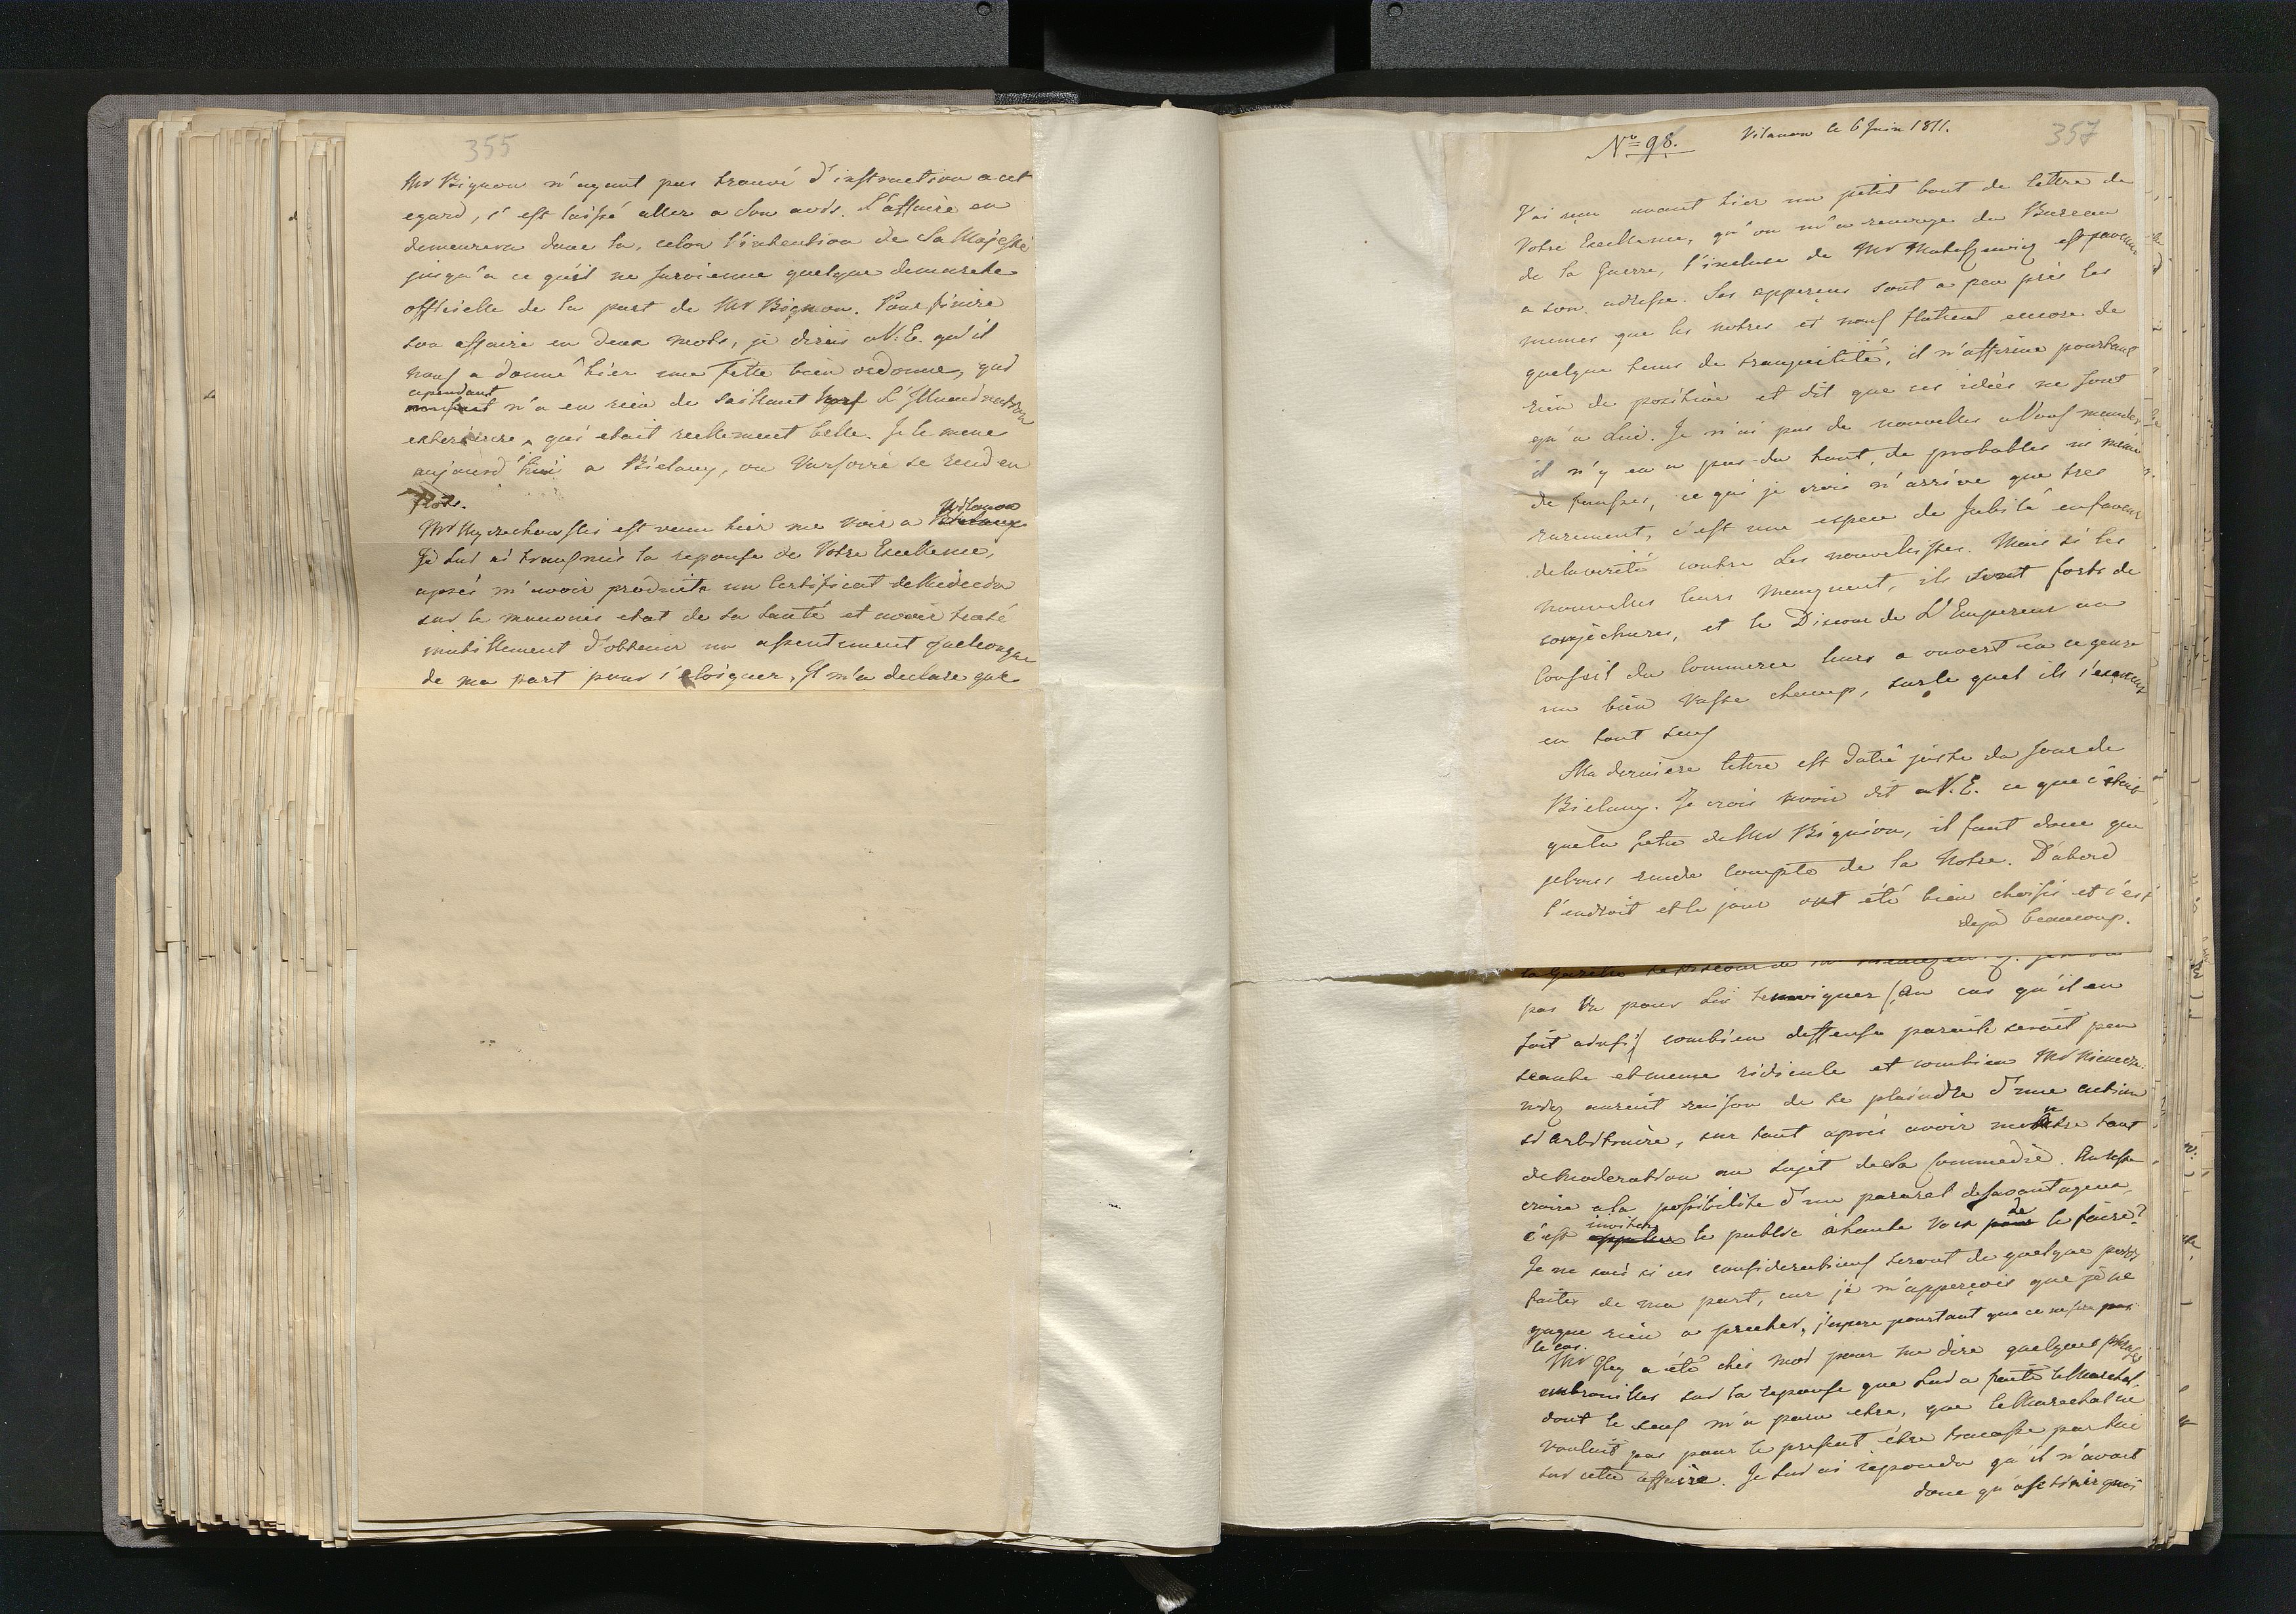 355
Mr Bignon n'ayant pas trouvé d'instruction a cet
egard, s'est laissé aller a Son avis. L'affaire en
demeurera donc la, celon l'intention de Sa Majesté
jusqu'a ce qu'il ne survienne quelque demarche
officielle de la part de Mr Bignon. Pour finire
son affaire en deux mots, je dirais a V. E. qu'il
nous a donné hier une fette bien ordonne, qui
cependant
n'a eu rien de saillant hors L'Illumination
exterieure, qui etait reellement belle. Je le mene
aujourd'hui a Bielany, ou Varsovie se rend en
flots.
Wilanow
Mr est venu hier me voir a
Je Lui ai transmis la reponse de Votre Excellence,
après m'avoir produite un Certificat de Medecin
sur le mauvais etat de sa santé et avoir taché
inutillement d'obtenir un assentiment quelconque
de ma part pour s'eloigner, Il m'a declaré que
No 98.
Vilanow le 6 Juin 1811.
357
J'ai reçu avant hier un petit bout de lettre de
Votre Excellence, qu'on m'a renvoye du Bureau
de la Guerre, l'incluse de Mr Matuszewicz est parvenue
a son adresse. Ses apperçus sont a peu près les
memes que les notres et nous flattent encore de
quelque tems de tranquilité, il n'affirme pourtant
rien de positive et dit que ces idées ne sont
qu'a Lui. Je n'ai pas de nouvelles a Vous mander
il n'y en a pas du tout, de probables ni même
de fausses, ce qui je crois n'arrive que tres
rarement, c'est une espece de Jubilé en faveur
de la verité contre les nouvellistes. Mais si les
nouvelles leurs manquent, ils sont forts de
conjectures, et le Discour de L'Empereur au
Conseil du Commerce leurs a ouvert en ce genre
un bien vaste champ, sur le quel ils s'exercent
en tout sens
Ma derniere lettre est datée juste du jour de
Bielany. Je crois avoir dit a V. E. ce que c'etait
que la fette de Mr Bignion, il faut donc que
je Vous rende compte de la Notre. D'abord
l'endroit et le jour ont été bien choisis et c'est
deja beaucoup.
pas Vu pour Lui temoigner (au cas qu'il en
soit ainsi) combien deffense pareile serait peu
seante et meme ridicule et combien Mr Niemce-
wicz aurait raison de se plaindre d'une action
si arbitraire, sur tout après avoir montre tant
de moderation au sujet de sa Commedie.
croire a la possibilité d'un pararel desavantageux,
inviter de
c'est le public à haute voix le faire?
Je ne sais si ces considerations seront de quelque poids
faites de ma part, car je m'apperçois que je ne
gagne rien a precher, j'espere pourtant que ce ne sera pas
le cas.
Mr Gley a été chés moi pour me dire quelques phrases
embrouillés sur la reponse que Lui a faite le Marechal,
dont le sens m'a paru etre, que le Marechal ne
voulait pas pour le present être tracassé par lui
sur cette affaire. Je Lui ai repondu qu'il n'avait
donc qu'a se tenir quoi